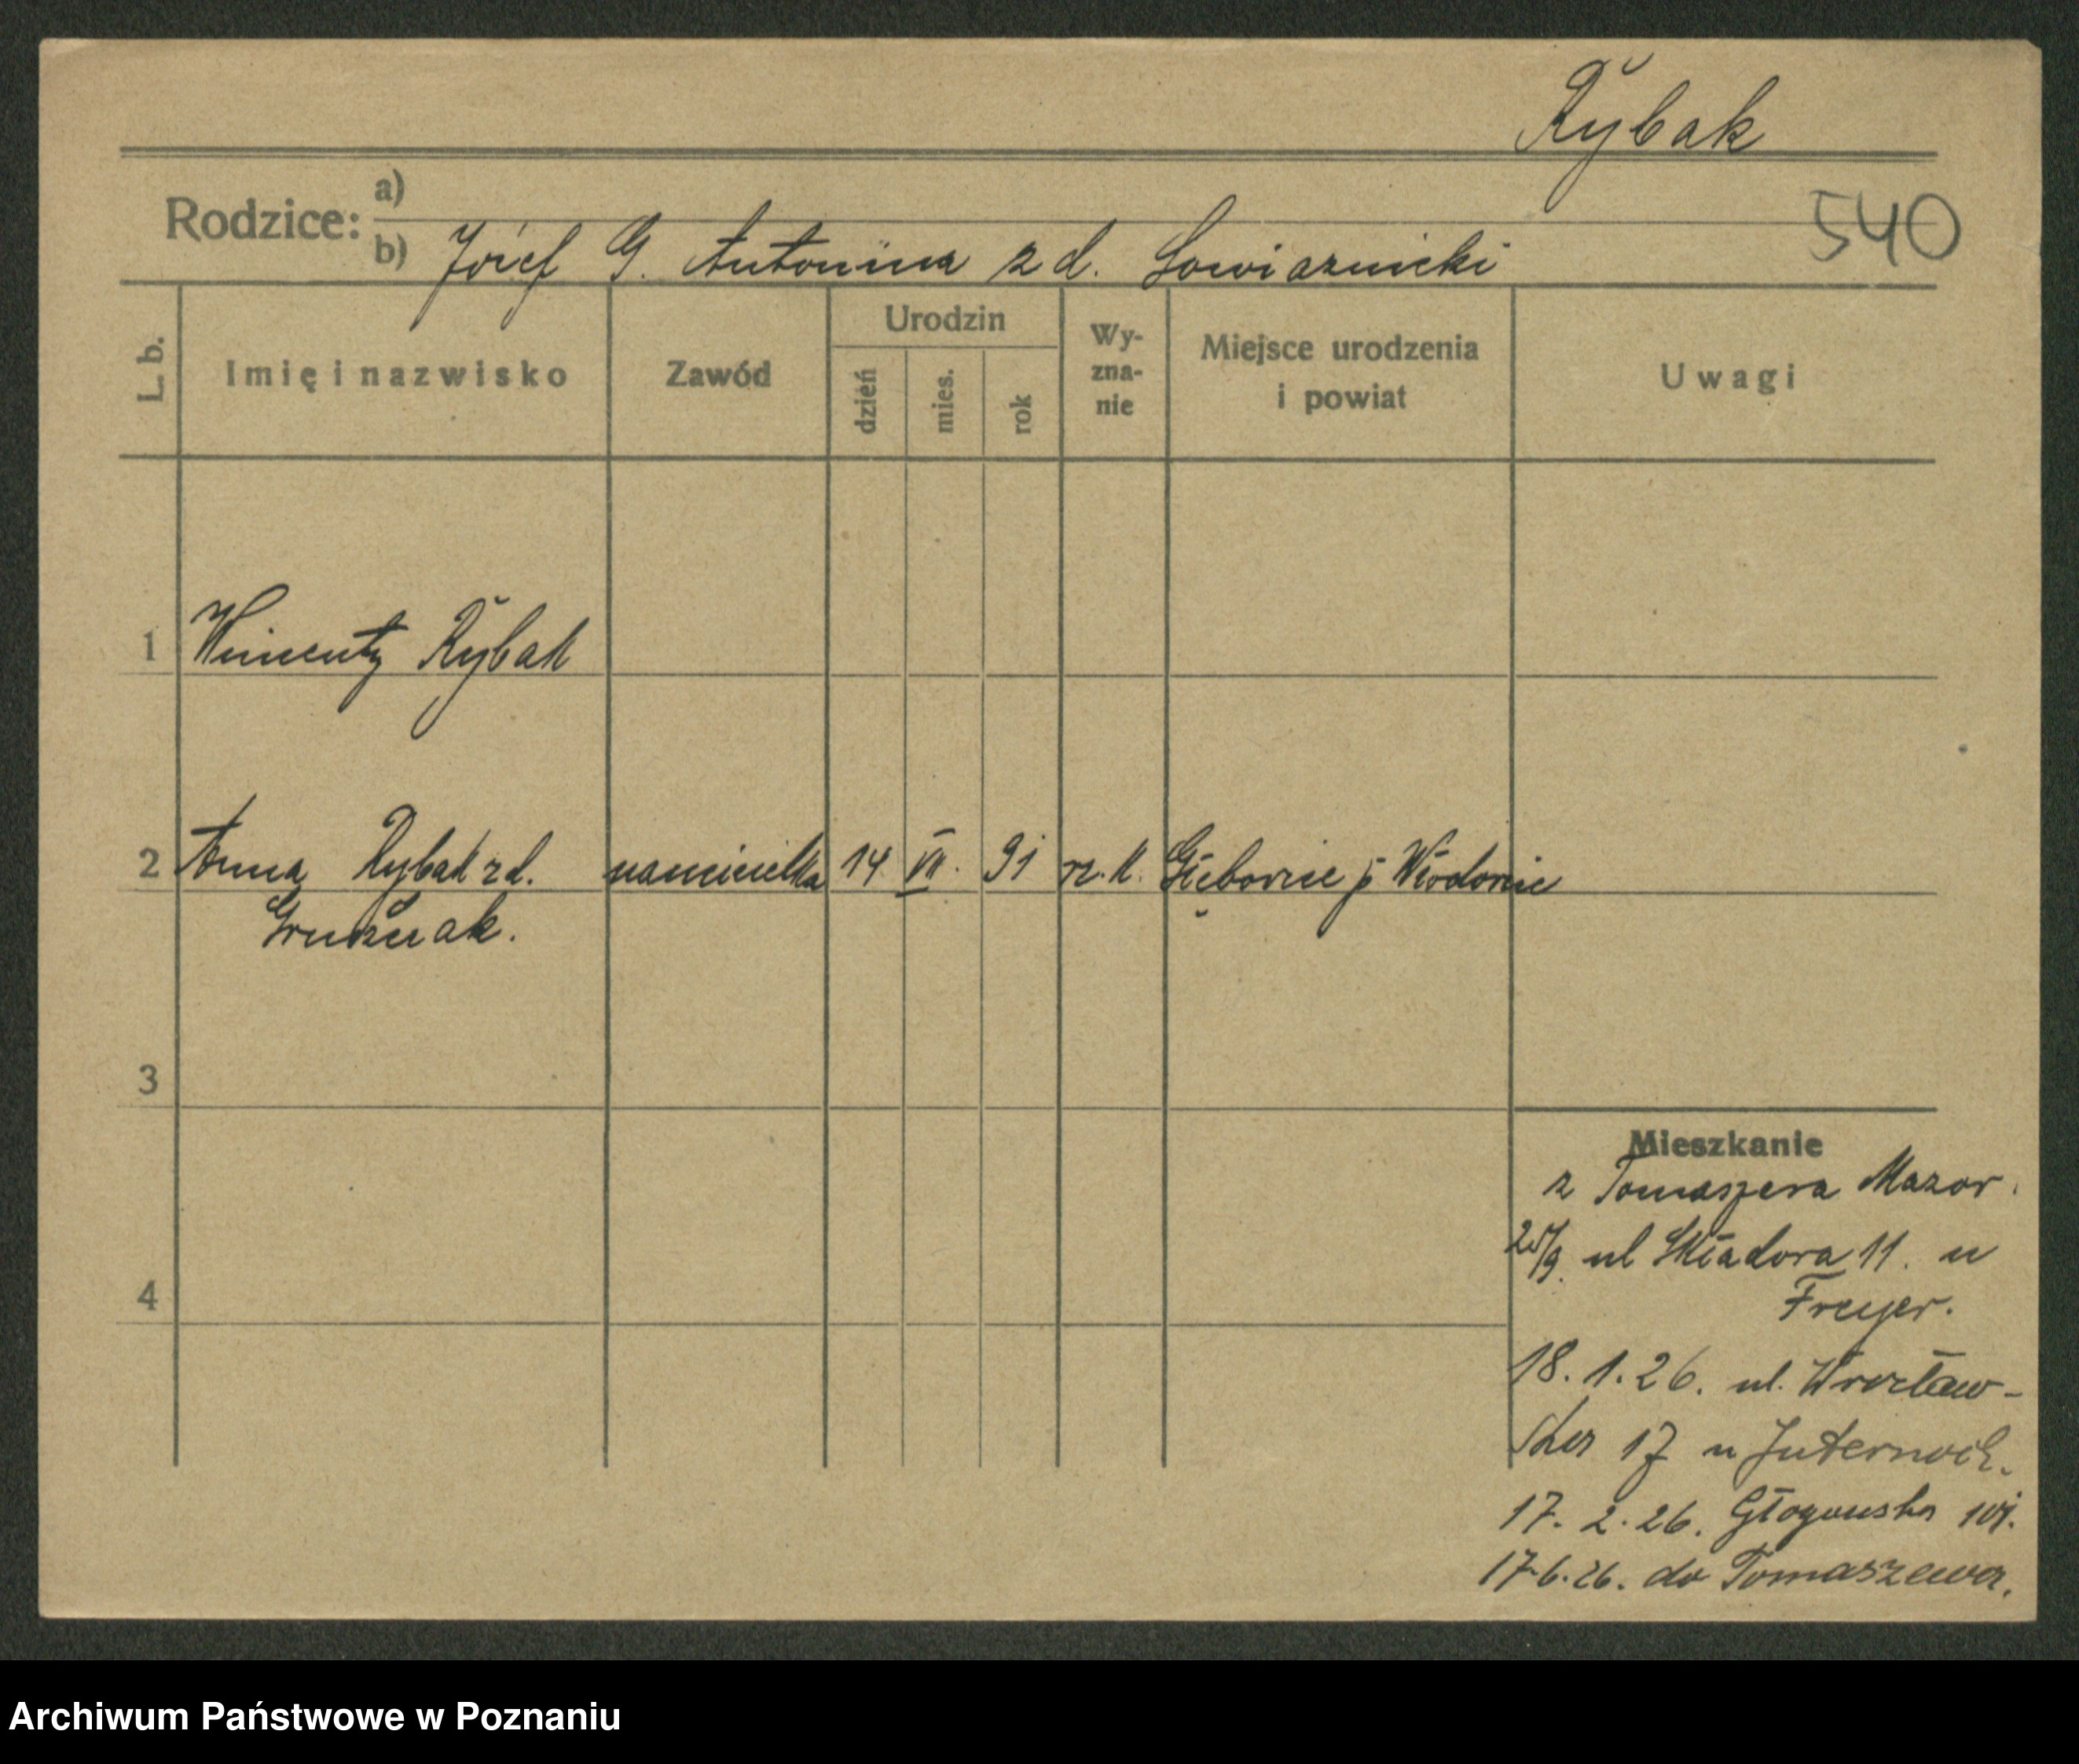 Rybak
Rodzice: a)
b) Józef G. Antonina z d. Sowiaznicki
540
L. b.
Imię i nazwisko
Zawód
Urodzin
dzień
mies.
rok
Wy-
zna-
nie
Miejsce urodzenia
i powiat
Uwagi
1 Wincenty Rybak
2 Anna Rybak z d. nauczycielka 14 VII. 91 rz. k. Głębowice p Włodowic
3
4
Mieszkanie
z Tomaszewa Mazow.
25/9. ul Składowa 11. u
Freyer.
18. 1. 26. ul. Wrocław-
ska 17 u
17. 2. 26. Głogowska
17.6.26. do Tomaszewa.
Archiwum Państwowe w Poznaniu